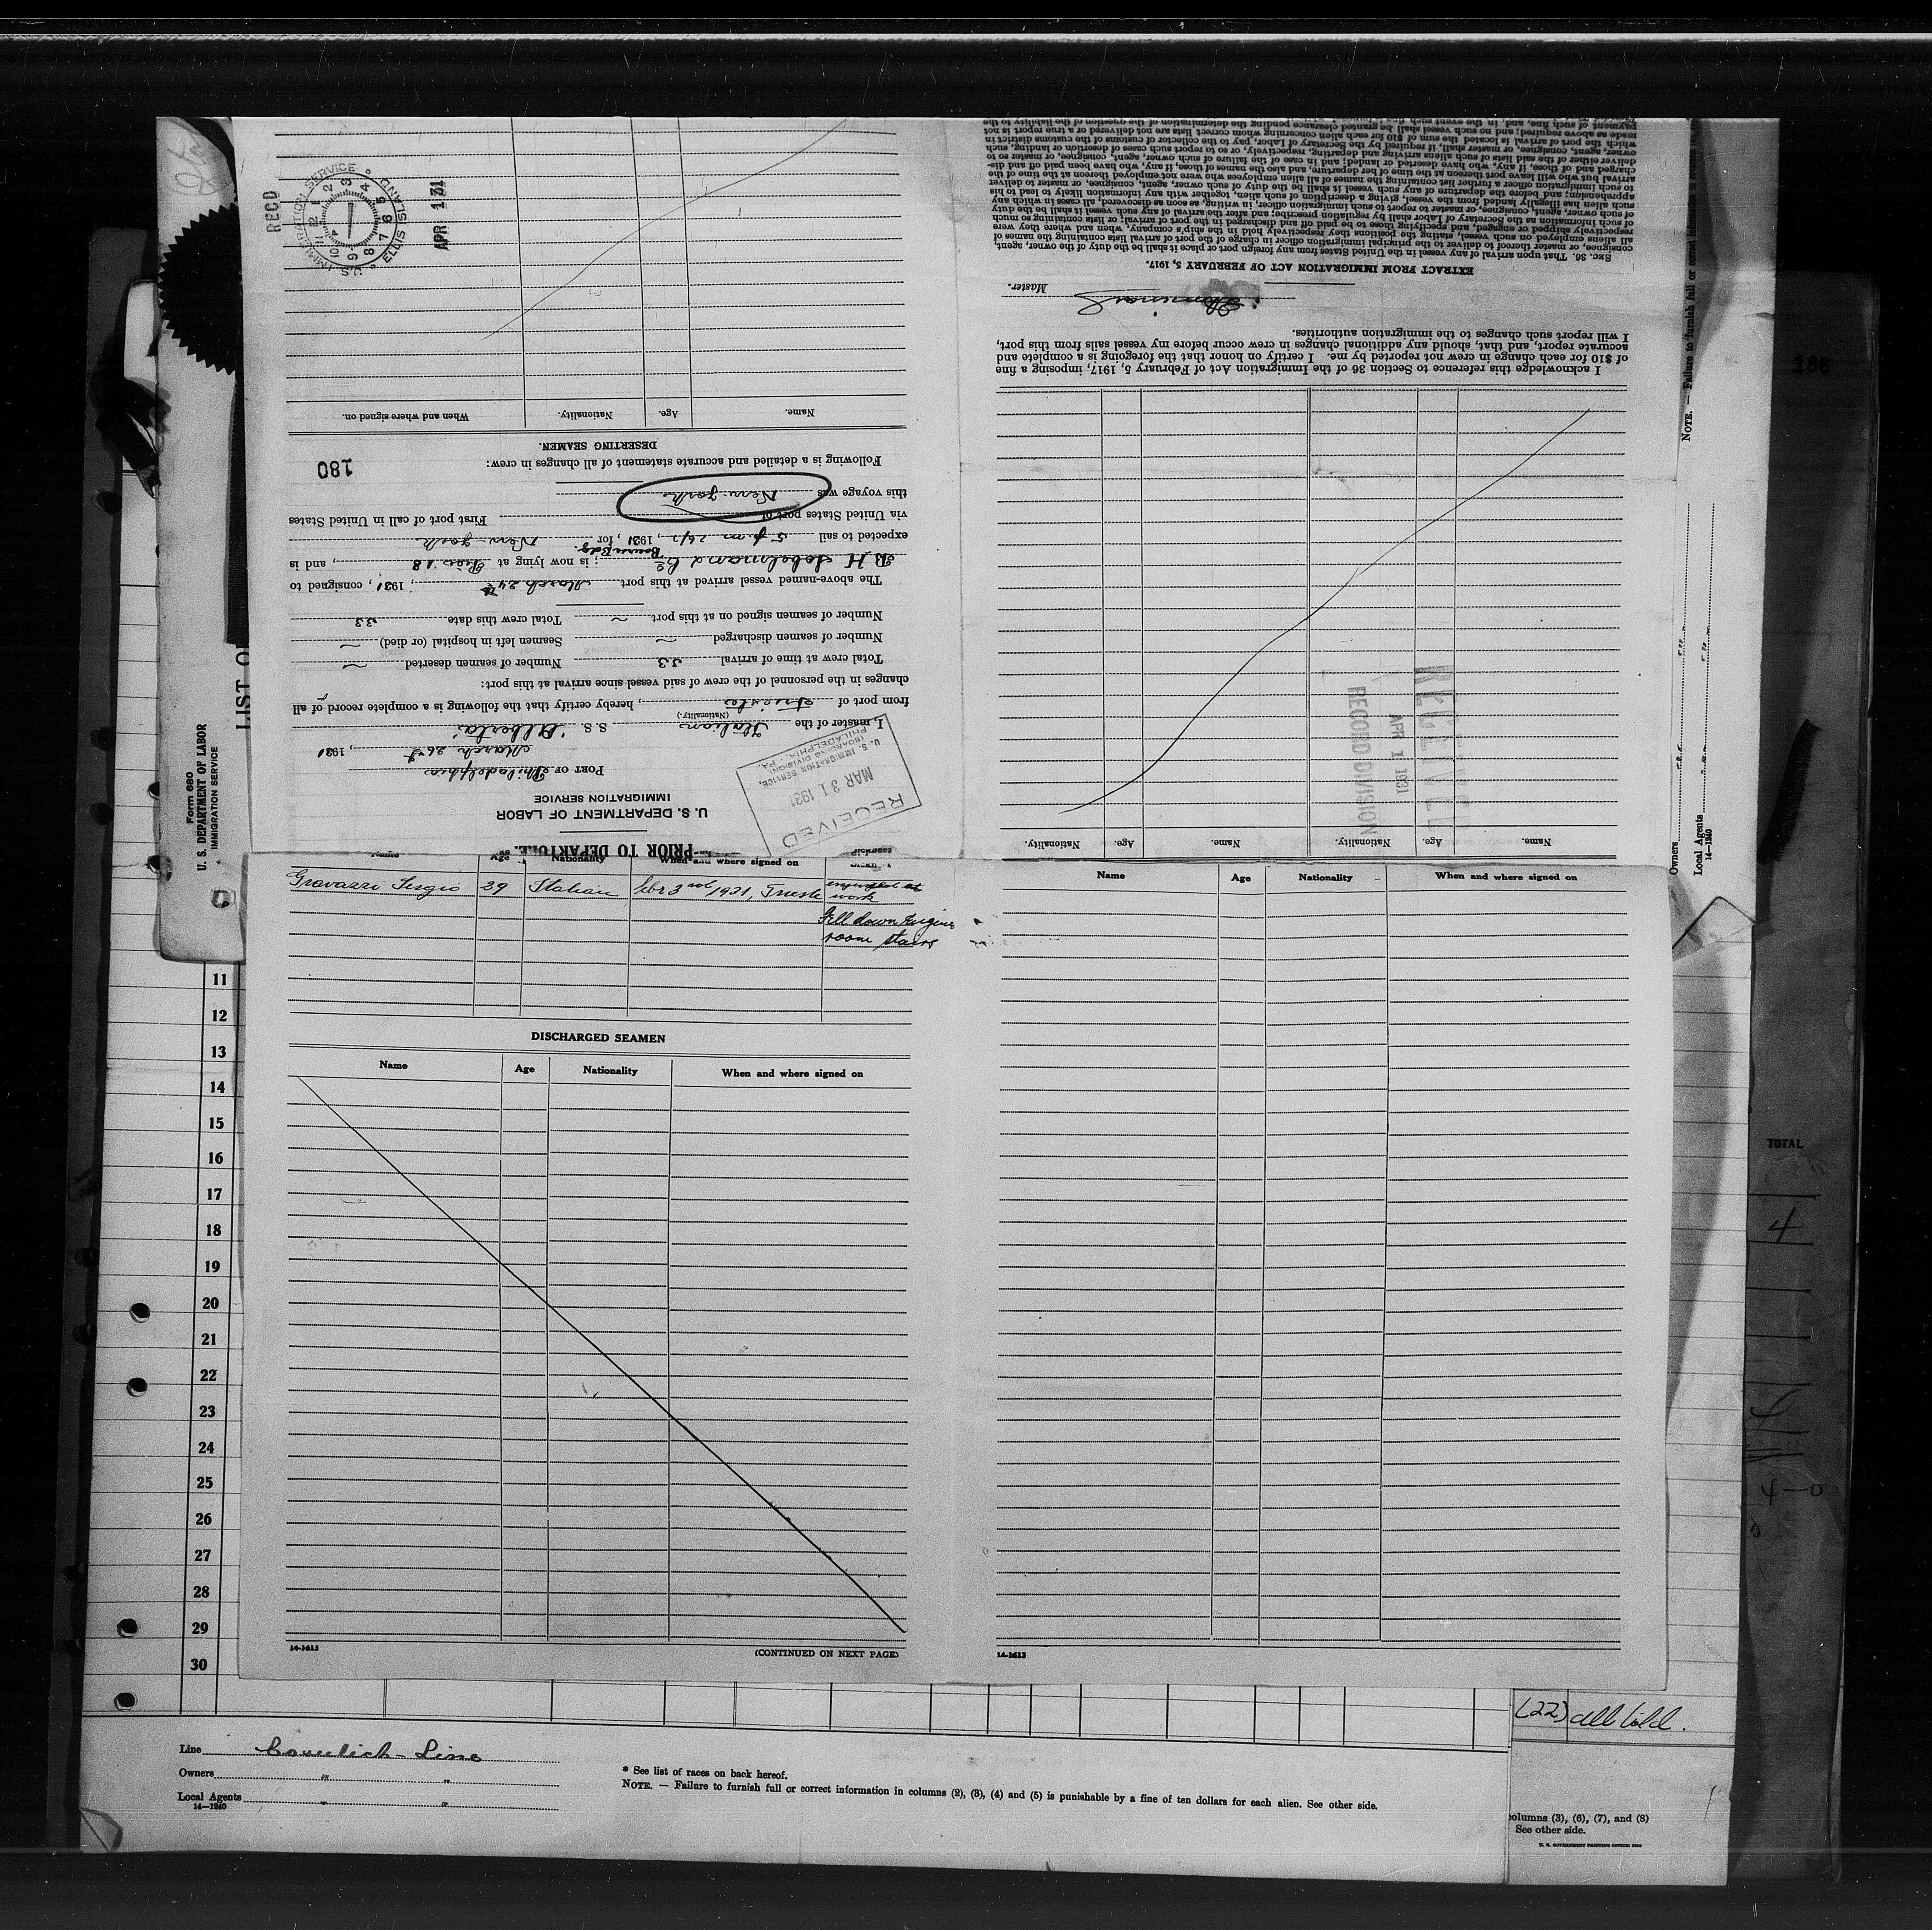 RECD
APR 1 31
IMMIGRATION SERVICE
U.S.
ELLIS ISLAND
Form 680
U. S. DEPARTMENT OF LABOR
IMMIGRATION SERVICE
LIST O
PRIOR TO DEPARTURE.
U. S. DEPARTMENT OF LABOR
IMMIGRATION SERVICE
RECEIVED
MAR 31 1931
U. S. IMMIGRATION SERVICE,
(BOARDING DIVISION)
PHILADELPHIA, PA.
PORT OF Philadelphia
March 26th, 1931
I, master of the Italian S. S. "Alberta"
(Nationality.)
from port of Trieste, hereby certify that the following is a complete record of all
changes in the personnel of the crew of said vessel since arrival at this port:
Total crew at time of arrival 33 Number of seamen deserted
Number of seamen discharged Seamen left in hospital (or died)
Number of seamen signed on at this port Total crew this date 33
The above-named vessel arrived at this port March 24th, 1931, consigned to
B H Sobelman & Co Bourse Bldg; is now lying at Pier 18, and is
expected to sail 5 p.m. 26/3, 1931, for New York
via United States port of First port of call in United States
this voyage was New York
Following is a detailed and accurate statement of all changes in crew:
180
DESERTING SEAMEN.
Name. Age. Nationality. When and where signed on.
Name. Age. Nationality. Name. Age. Nationality.
RECEIVED
APR 1 1931
RECORD DIVISION
I acknowledge this reference to Section 36 of the Immigration Act of February 5, 1917, imposing a fine
of $10 for each change in crew not reported by me. I certify on honor that the foregoing is a complete and
accurate report, and that, should any additional changes in crew occur before my vessel sails from this port,
I will report such changes to the immigration authorities.
Master.
EXTRACT FROM IMMIGRATION ACT OF FEBRUARY 5, 1917.
SEC. 36. That upon arrival of any vessel in the United States from any foreign port or place it shall be the duty of the owner, agent,
consignee, or master thereof to deliver to the principal immigration officer in charge of the port of arrival lists containing the names of
all aliens employed on such vessel, stating the positions they respectively hold in the ship's company, when and where they were
respectively shipped or engaged, and specifying those to be paid off and discharged in the port of arrival; or lists containing so much
of such information as the Secretary of Labor shall by regulation prescribe; and after the arrival of any such vessel it shall be the duty
of such owner, agent, consignee, or master to report to such immigration officer, in writing, as soon as discovered, all cases in which any
such alien has illegally landed from the vessel, giving a description of such alien, together with any information likely to lead to his
apprehension; and before the departure of any such vessel it shall be the duty of such owner, agent, consignee, or master to deliver
to such immigration officer a further list containing the names of all alien employees who were not employed thereon at the time of the
arrival but who will leave port thereon at the time of her departure, and also the names of those, if any, who have been paid off and dis-
charged and of those, if any, who have deserted or landed; and in case of the failure of such owner, agent, consignee, or master so to
deliver either of the said lists of such aliens arriving and departing, respectively, or so to report such cases of desertion or landing, such
owner, agent, consignee, or master shall, if required by the Secretary of Labor, pay to the collector of customs of the customs district in
which the port of arrival is located the sum of $10 for each alien concerning whom correct lists are not delivered or a true report is not
made as above required; and no such vessel shall be granted clearance pending the determination of the question of the liability to the
payment of such fine, and, in the event such fine is imposed,
Name Age Nationality When and where signed on
Gravazzi Sergio 29 Italian febr 3rd 1931, Trieste injured at work
Fell down Engine
room stairs
DISCHARGED SEAMEN
Name Age Nationality When and where signed on
14-1613 (CONTINUED ON NEXT PAGE)
Name Age Nationality When and where signed on
14-1613
NOTE. — Failure to furnish full or
Owners
Local Agents
14—1240
186
TOTAL
4
4-0
11
12
13
14
15
16
17
18
19
20
21
22
23
24
25
26
27
28
29
30
(22) all told.
Line Cosulich-Line
Owners " "
Local Agents " "
14—1240
* See list of races on back hereof.
NOTE. — Failure to furnish full or correct information in columns (2), (3), (4) and (5) is punishable by a fine of ten dollars for each alien. See other side.
columns (3), (6), (7), and (8)
See other side.
U. S. GOVERNMENT PRINTING OFFICE: 1930